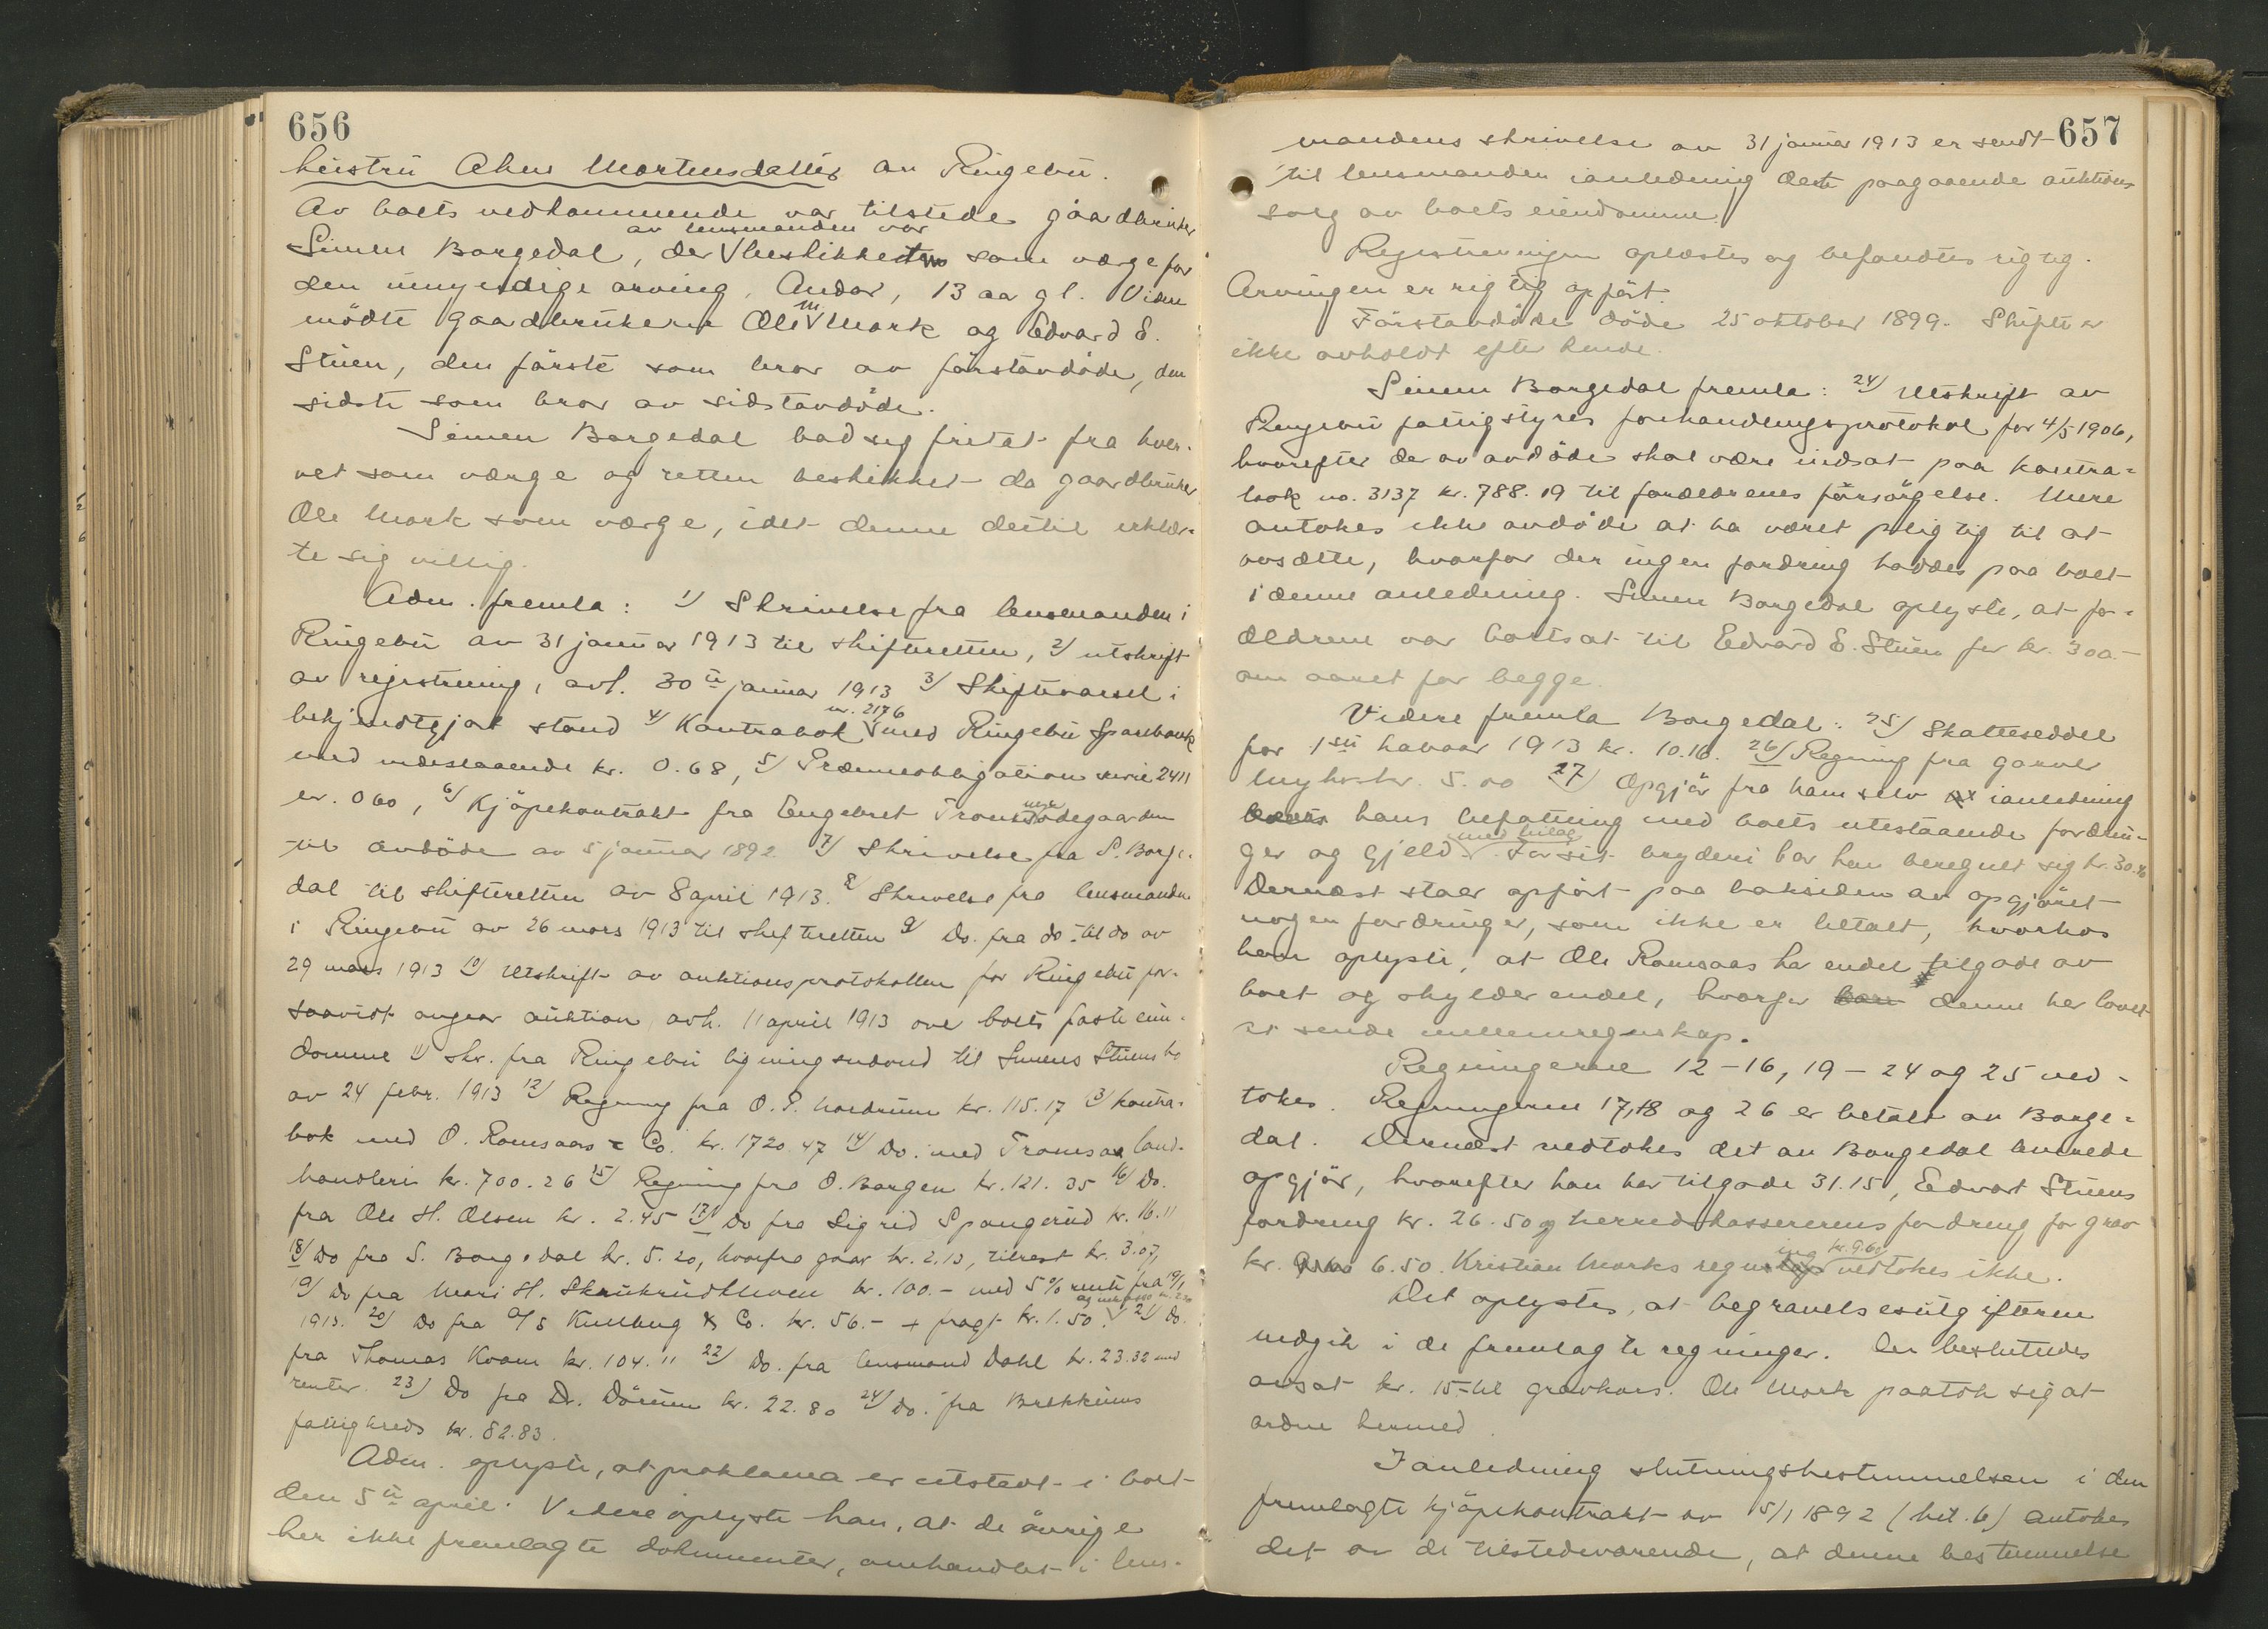 656
hustru Ahne Mortensdatter av Ringebu.
Av boets vedkommende var tilstede gaardbruker
av lensmanden var
Simen Borgedal, der beskikket som værge for
den umyndige arving, Andor, 13 aar gl. Viden
mödte gaardbrukerne Ole M Mork og Edvard E.
Stuen, den förste som bror av förstavdöde, den
sidste som bror av sidstavdöde.
Simen Borgedal bad sig fritat fra hver-
vet som værge og retten beskikket da gaardbruker
Ole Mork som værge, idet denne dertil erklær-
te sig villig.
Adm. fremla: 1) Skrivelse fra lensmanden i
Ringebu av 31 januar 1913 til skifteretten, 2) utskrift
av registrering, avh. 30te januar 1913 3) Skiftevarsel i
nr. 2176
bekjendtgjort stand 4) Kontrabok med Ringebu Sparebank
med indestaaende kr. 0.68, 5) Præmieobligation serie 2411
nr. 060, 6) Kjöpekontrakt fra Engebret Troms nedre ödegaarden
til avdöde av 5 januar 1892. 7) Skrivelse fra S. Borge-
dal til skifteretten av 8 april 1913. 8) Skrivelse fra lensmanden
i Ringebu av 26 mars 1913 til skifteretten 9) Do. fra do. til do av
29 mars 1913 10) Utskrift av auktionsprotokollen for Ringebu for-
saavidt angaar auktion avh. 11 april 1913 over boets faste eien-
domme 11) skr. fra Ringebu ligningsnævnd til Simens Stuens bo
av 24 febr. 1913 12) Regning fra O. P. Moedrum kr. 115.17 13) Kontra-
bok med O. Romsaas & Co. kr. 1720.47 14) Do. med Tromsa land-
handleri kr. 700.26 15) Regning fra O. Borgen kr. 121.35 16) Do.
fra Ole H. Olsen kr. 2.45 17) Do fra Sigrid Spangrud kr. 16.11
18) Do fra S. Borgedal kr. 5.20, hvorfra gaar kr. 2.13, tilrest kr. 3.07,
19) Do fra Mari H. Skrukrudmoen kr. 100.- med 5% rente fra 19/1
1913. 20) Do fra A/S Kullbug & Co. kr. 56.- + fragt kr. 1.50. 21) Do.
fra Thomas Kvam kr. 104.11 22) Do. fra lensmand Dahl kr. 23.32 med
renter. 23) Do fra Dr. Dörum kr. 22.80 24) Do. fra Brekkums
fattigkreds kr. 82.83.
Adm. oplyste, at proklama er utstedt i boet
den 5te april. Videre oplyste han, at de övrige
her ikke fremlagte dokumenter, omhandlet i lens-
657
mandens skrivelse av 31 januar 1913 er sendt
til lensmanden i anledning dette paagaaende auktions
salg av boets eiendomme.
Registreringen oplæstes og befandtes rigtig.
Arvingen er rigtig opfört.
Förstavdöde döde 25 oktober 1899. Skifte er
ikke avholdt efter hende.
Simen Borgedal fremla: 24) Utskrift av
Ringebu fattigstyres forhandlingsprotokol for 4/5 1906,
hvorefter der av avdöde skal være indsat paa kontra-
book no. 3137 kr. 788.19 til forældrenes forsörgelse. Mere
antokes ikke avdöde at ha været pligtig til at
avsætte, hvorfor der ingen fordring haddes paa boet
i denne anledning. Simen Borgedal oplyste, at for-
ældrene var bortsat til Edvard E. Stuen for kr. 300.-
om aaret for begge.
Videre fremla Borgedal: 25) Skatteseddel
for 1ste halvaar 1913 kr. 10.16. 26) Regning fra garver
Myhr kr. 5.00 27) Opgjör fra ham selv i anledning
hans befatning med boets utestaaende fordrin-
med bilag
ger og gjeld. For sit bryderi har han beregnet sig kr. 30.
Dernæst staar opfört paa baksiden av opgjöret
nogen fordringer, som ikke er betalt, hvorhos
han oplyste, at Ole Romsaas har endel tilgode av
boet og skylder endel, hvorfor denne har lovet
at sende mellemregnskap.
Regningerne 12-16, 19-24 og 25 ved-
tokes. Regningerne 17, 18 og 26 er betalt av Borge-
dal. Dernæst vedtokes det av Borgedal leverede
opgjör, hvorefter han har tilgode 31.15, Edvart Stuens
fordring kr. 26.50 og herredskassererens fordring for grav
ing kr. 9.60
kr. 6.50. Kristian Morks regn vedtokes ikke.
Det oplystes, at begravelsesutgifterne
indgik i de fremlagte regninger. Der beslutedes
avsat kr. 15.- til gravkors. Ole Mork paatok sig at
ordne hermed.
I anledning slutningsbestemmelsen i den
fremlagte kjöpekontrakt av 15/1 1892 (bil. 6) antokes
det av de tilstedeværende, at denne bestemmelse